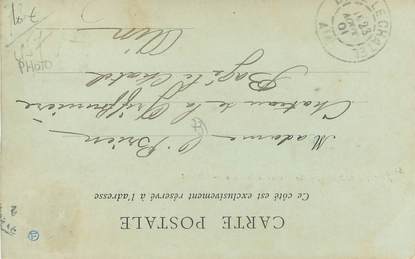 CARTE POSTALE
Ce côté est exclusivement réservé à l'adresse
Madame Brien
Chateau de la Griffonnière
Bagé le Chatel
Ain
PHOTO